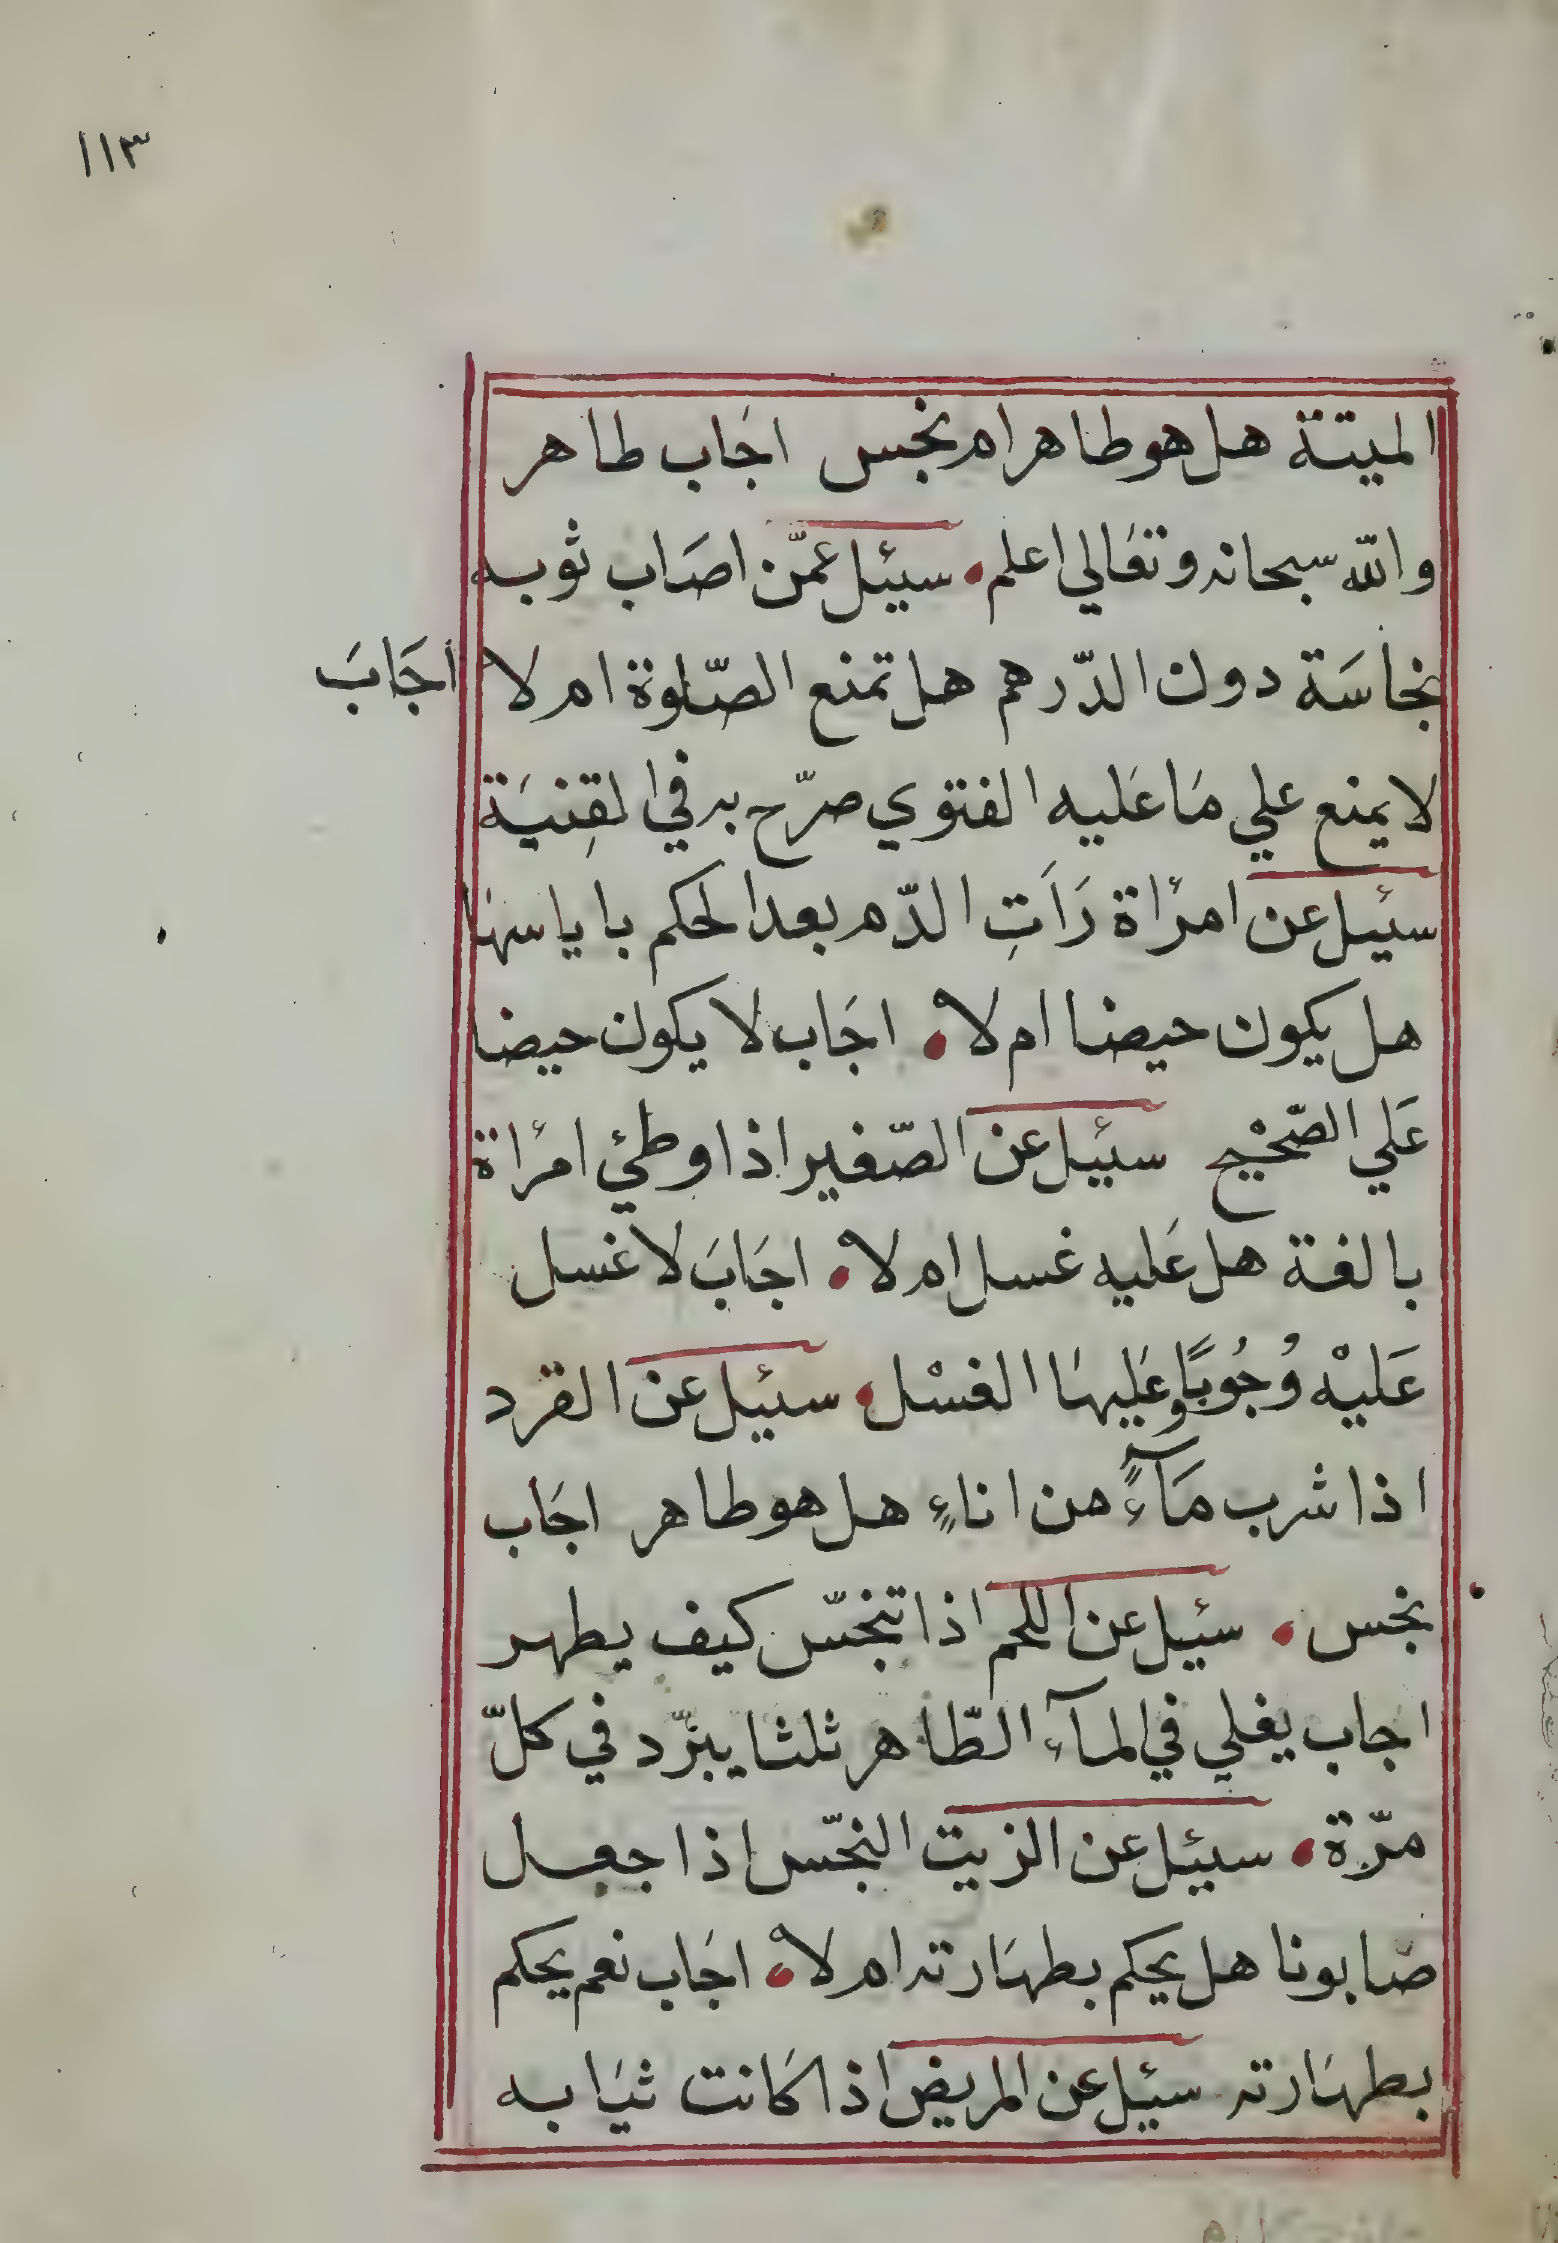 ١١٣
الميتة هل هو طاهر ام نجس اجَاب طاهر
والله سبحانه وتعَالي اعلم . سئيل عمّن اصَاب ثوبه
نجاسَة دون الدّرهم هل تمنع الصّلوة ام لا اجَابَ
لا يمنع علي مَا عَليه الفتوي صرّح به في القِنيَة
سئيل عن امرأة رَاَتِ الدّم بعد الحكم باياسهَا
هل يكون حيضا ام لا . اجَاب لا يكون حيضا
عَلي الصّحْيح سئيل عن الصّغير اذا وطئ امرأة
بالغة هل عَليه غسل ام لا . اجَابَ لا غسل
عَليْه وُجُوبًا وعَليهَا الغسْل . سئيل عن القرد
اذا شرب مَآءً من اناءٍ هل هو طاهر اجَاب
نجس . سئيل عن اللحم اذا تنجّس كيف يطهر
اجاب يغلي في المآء الطّاهر ثلثا يبرّد في كلّ
مرّة . سئيل عن الزيت النجّس اذا جعل
صَابونا هل يحكم بطهَارته ام لا . اجَاب نعم يحكم
بطهَارته سئيل عن المريض اذا كَانت ثيَابه